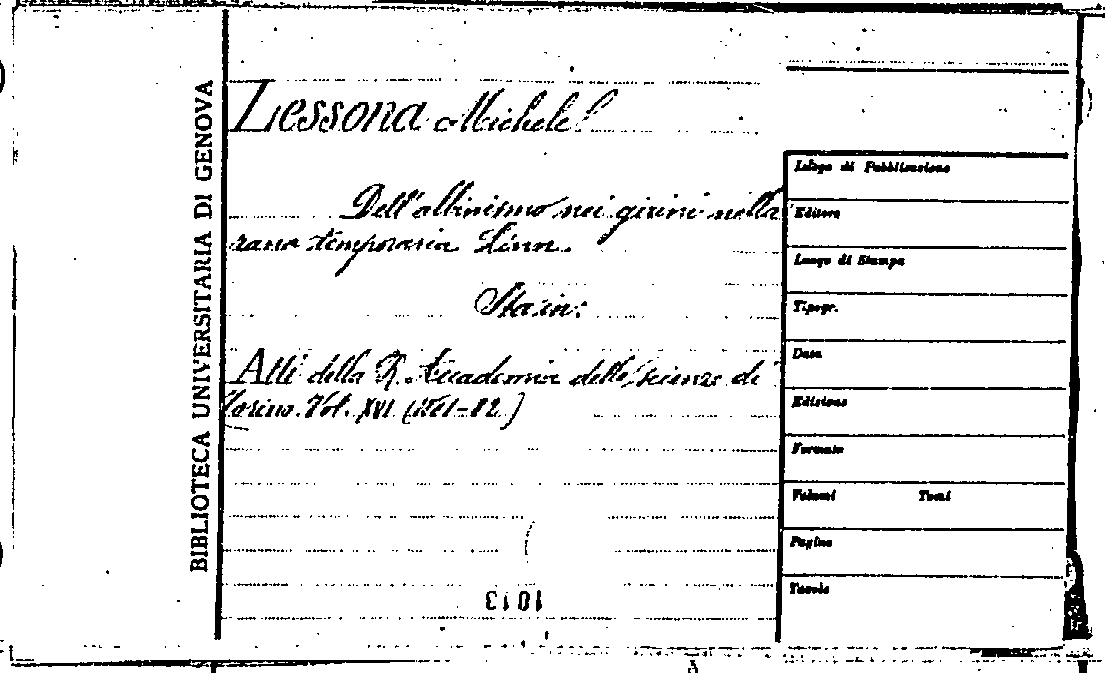 BIBLIOTECA UNIVERSITARIA DI GENOVA
Lessona Michele
Dell'albinismo nei girini nella
rana temporaria Linn.
Sta in:
Atti della R. Accademia delle Scienze di
Torino. Vol. XVI (1881-82)
1013
Luogo di Pubblicazione
Editore
Luogo di Stampa
Tipogr.
Data
Edizione
Formato
Volumi Tomi
Pagine
Tavole